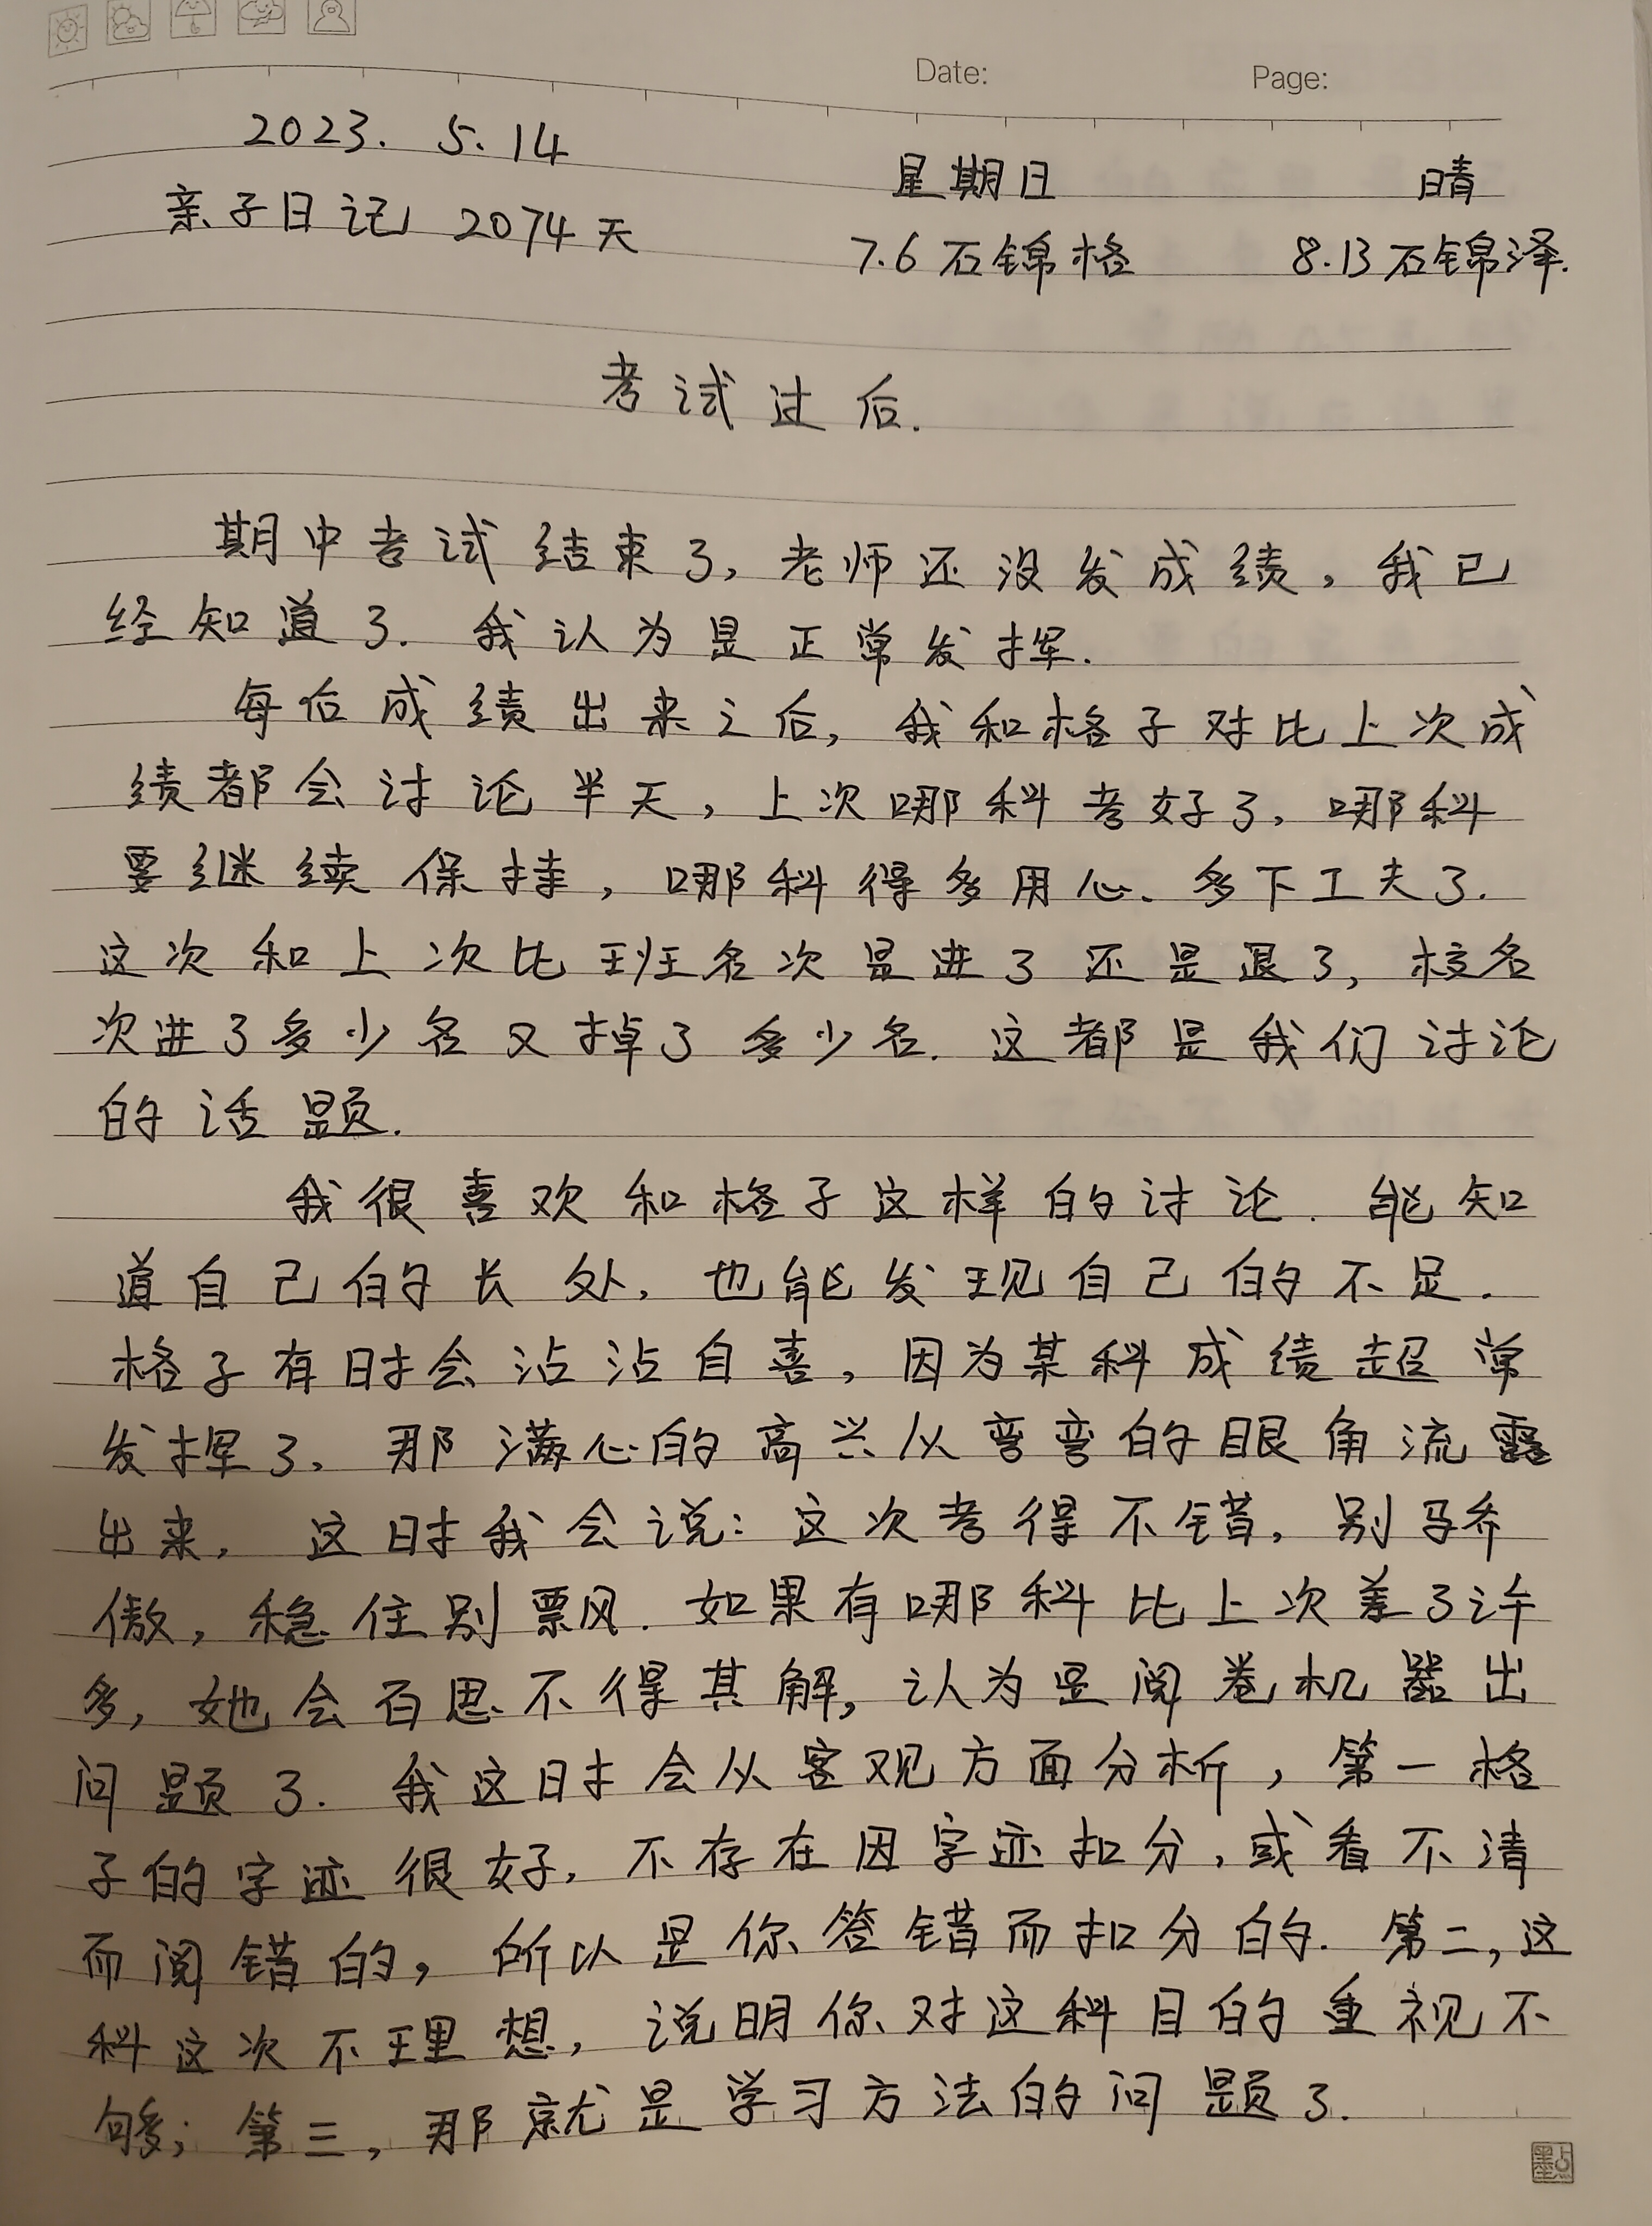 Date: Page:
2023. 5.14 星期日 晴
亲子日记 2074天 7.6石锦格 8.13石锦泽.
考试过后.
期中考试结束了,老师还没发成绩,我已
经知道了.我认为是正常发挥.
每台成绩出来之后,我和格子对比上次成
绩都会讨论半天,上次哪科考好了,哪科
要继续保持,哪科得多用心、多下工夫了.
这次和上次比班名次是进了还是退了,校名
次进了多少名又掉了多少名.这都是我们讨论
的话题.
我很喜欢和格子这样的讨论.能知
道自己的长处,也能发现自己的不足.
格子有时会沾沾自喜,因为某科成绩超常
发挥了,那满心的高兴从弯弯的眼角流露
出来,这时我会说:这次考得不错,别骄
傲,稳住别飘.如果有哪科比上次差了许
多,她会百思不得其解,认为是阅卷机器出
问题了.我这时会从客观方面分析,第一格
子的字迹很好,不存在因字迹扣分,或看不清
而阅错的,所以是你答错而扣分的.第二,这
科这次不理想,说明你对这科目的重视不
够;第三,那就是学习方法的问题了.
墨点